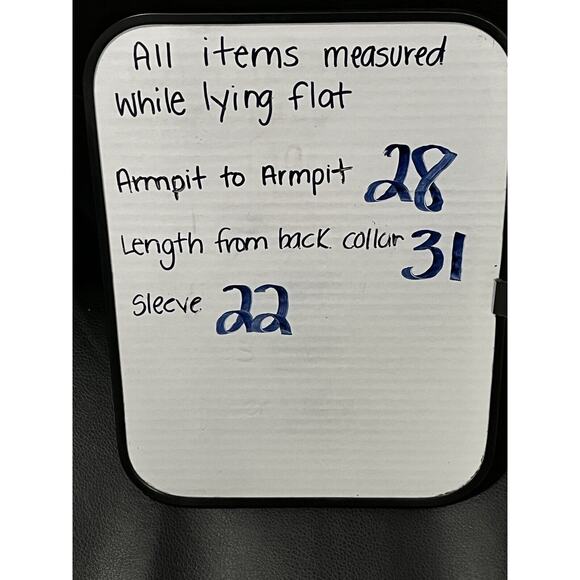 All items measured
while lying flat
Armpit to Armpit 28
Length from back collar 31
Sleeve 22